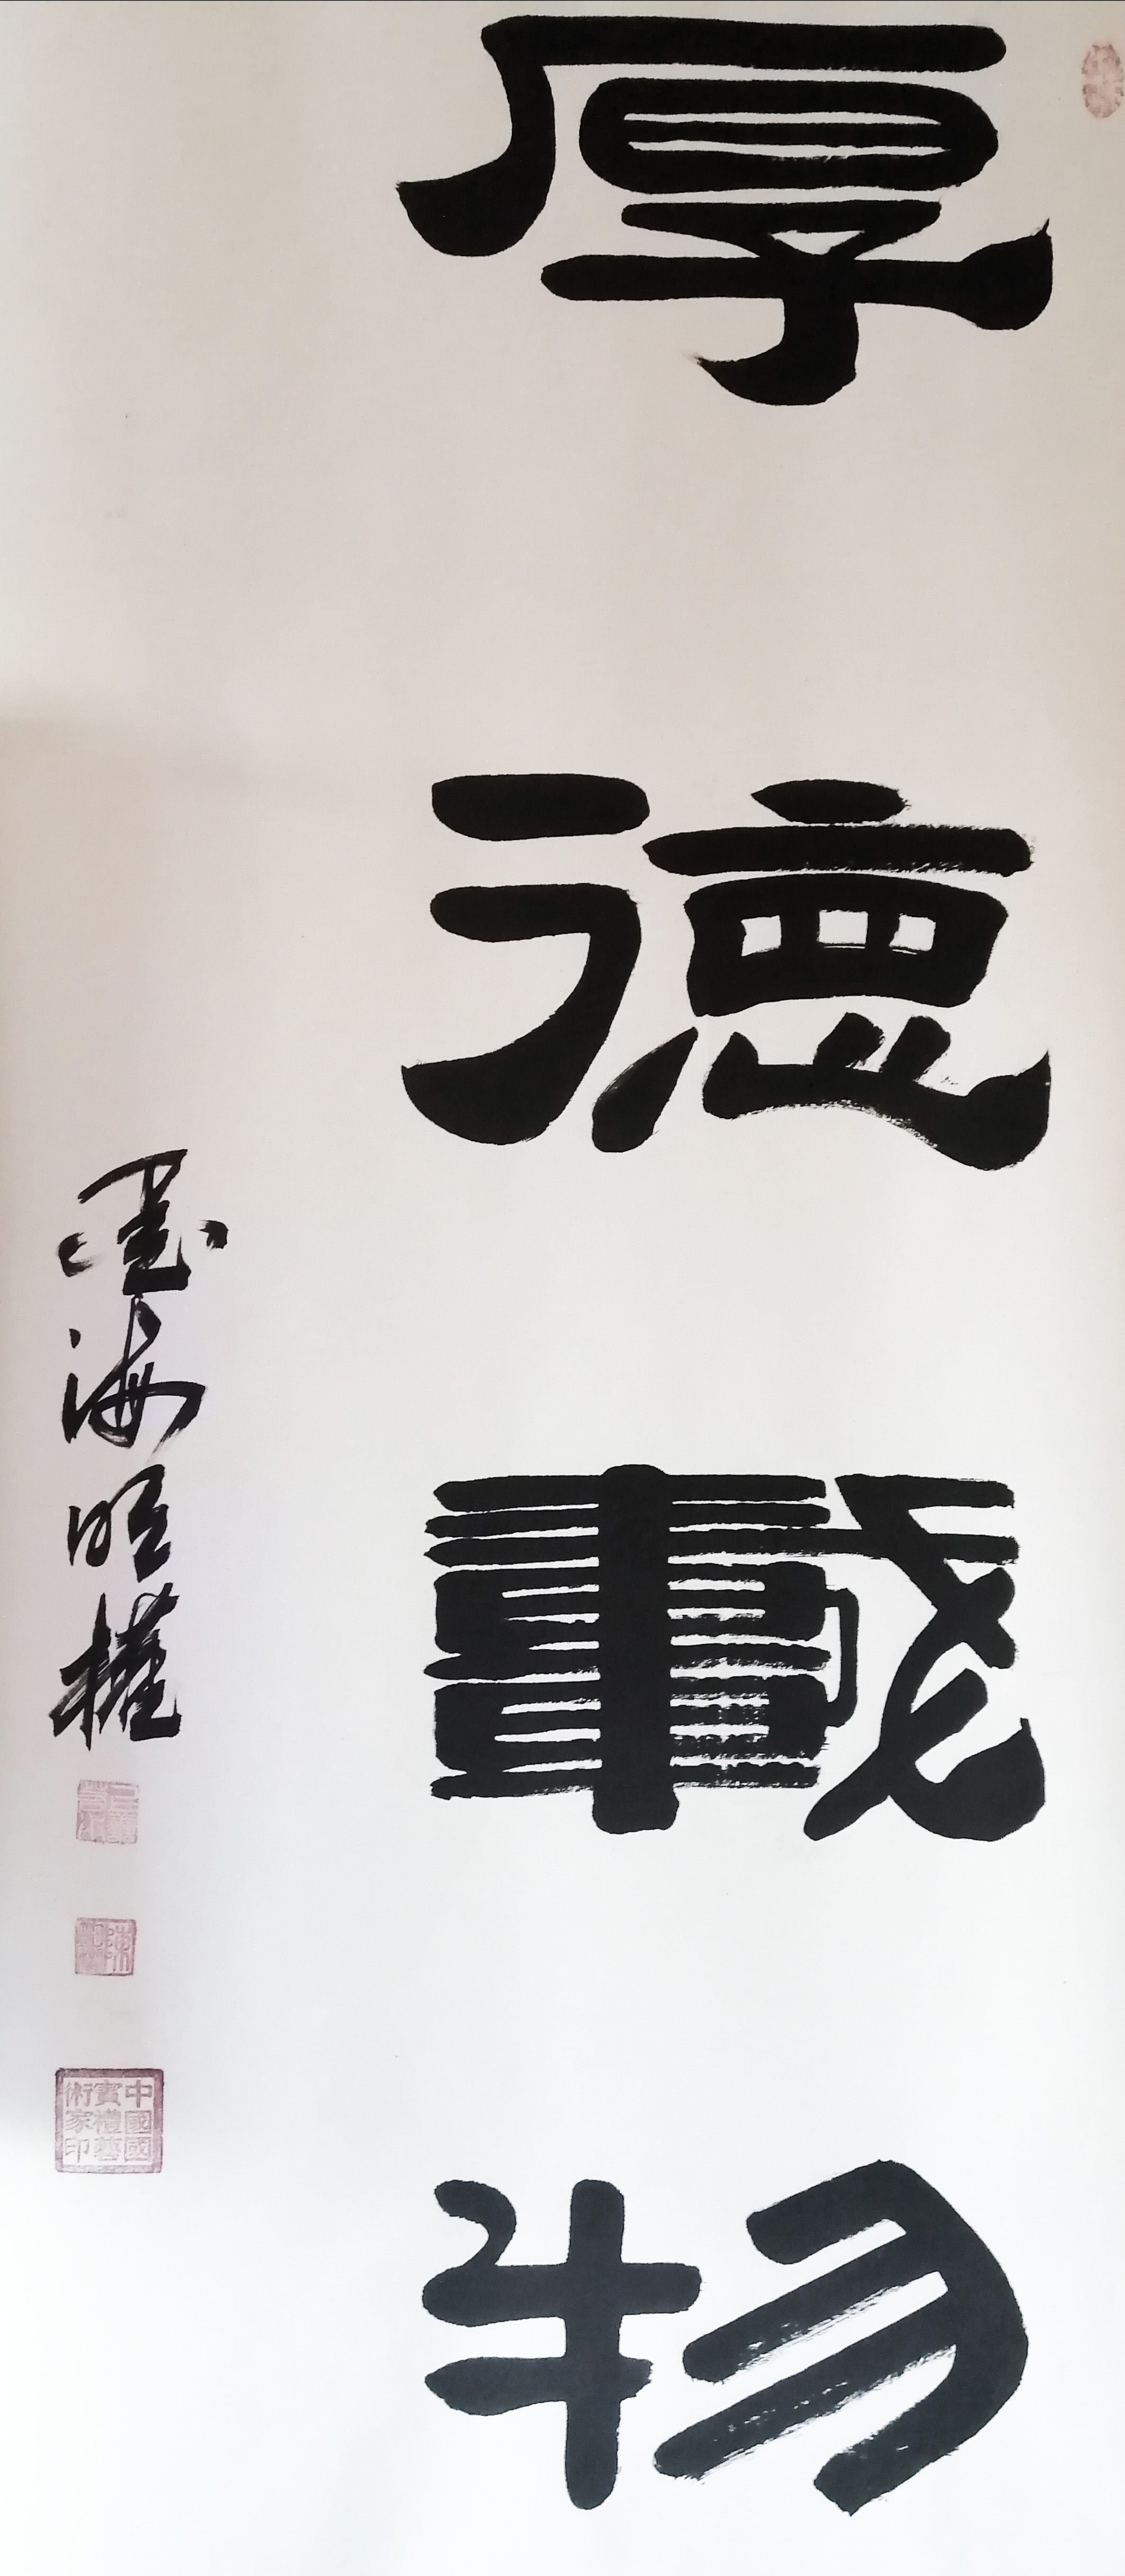 厚德載物
墨海明權
陳
中國國賓禮藝術家印